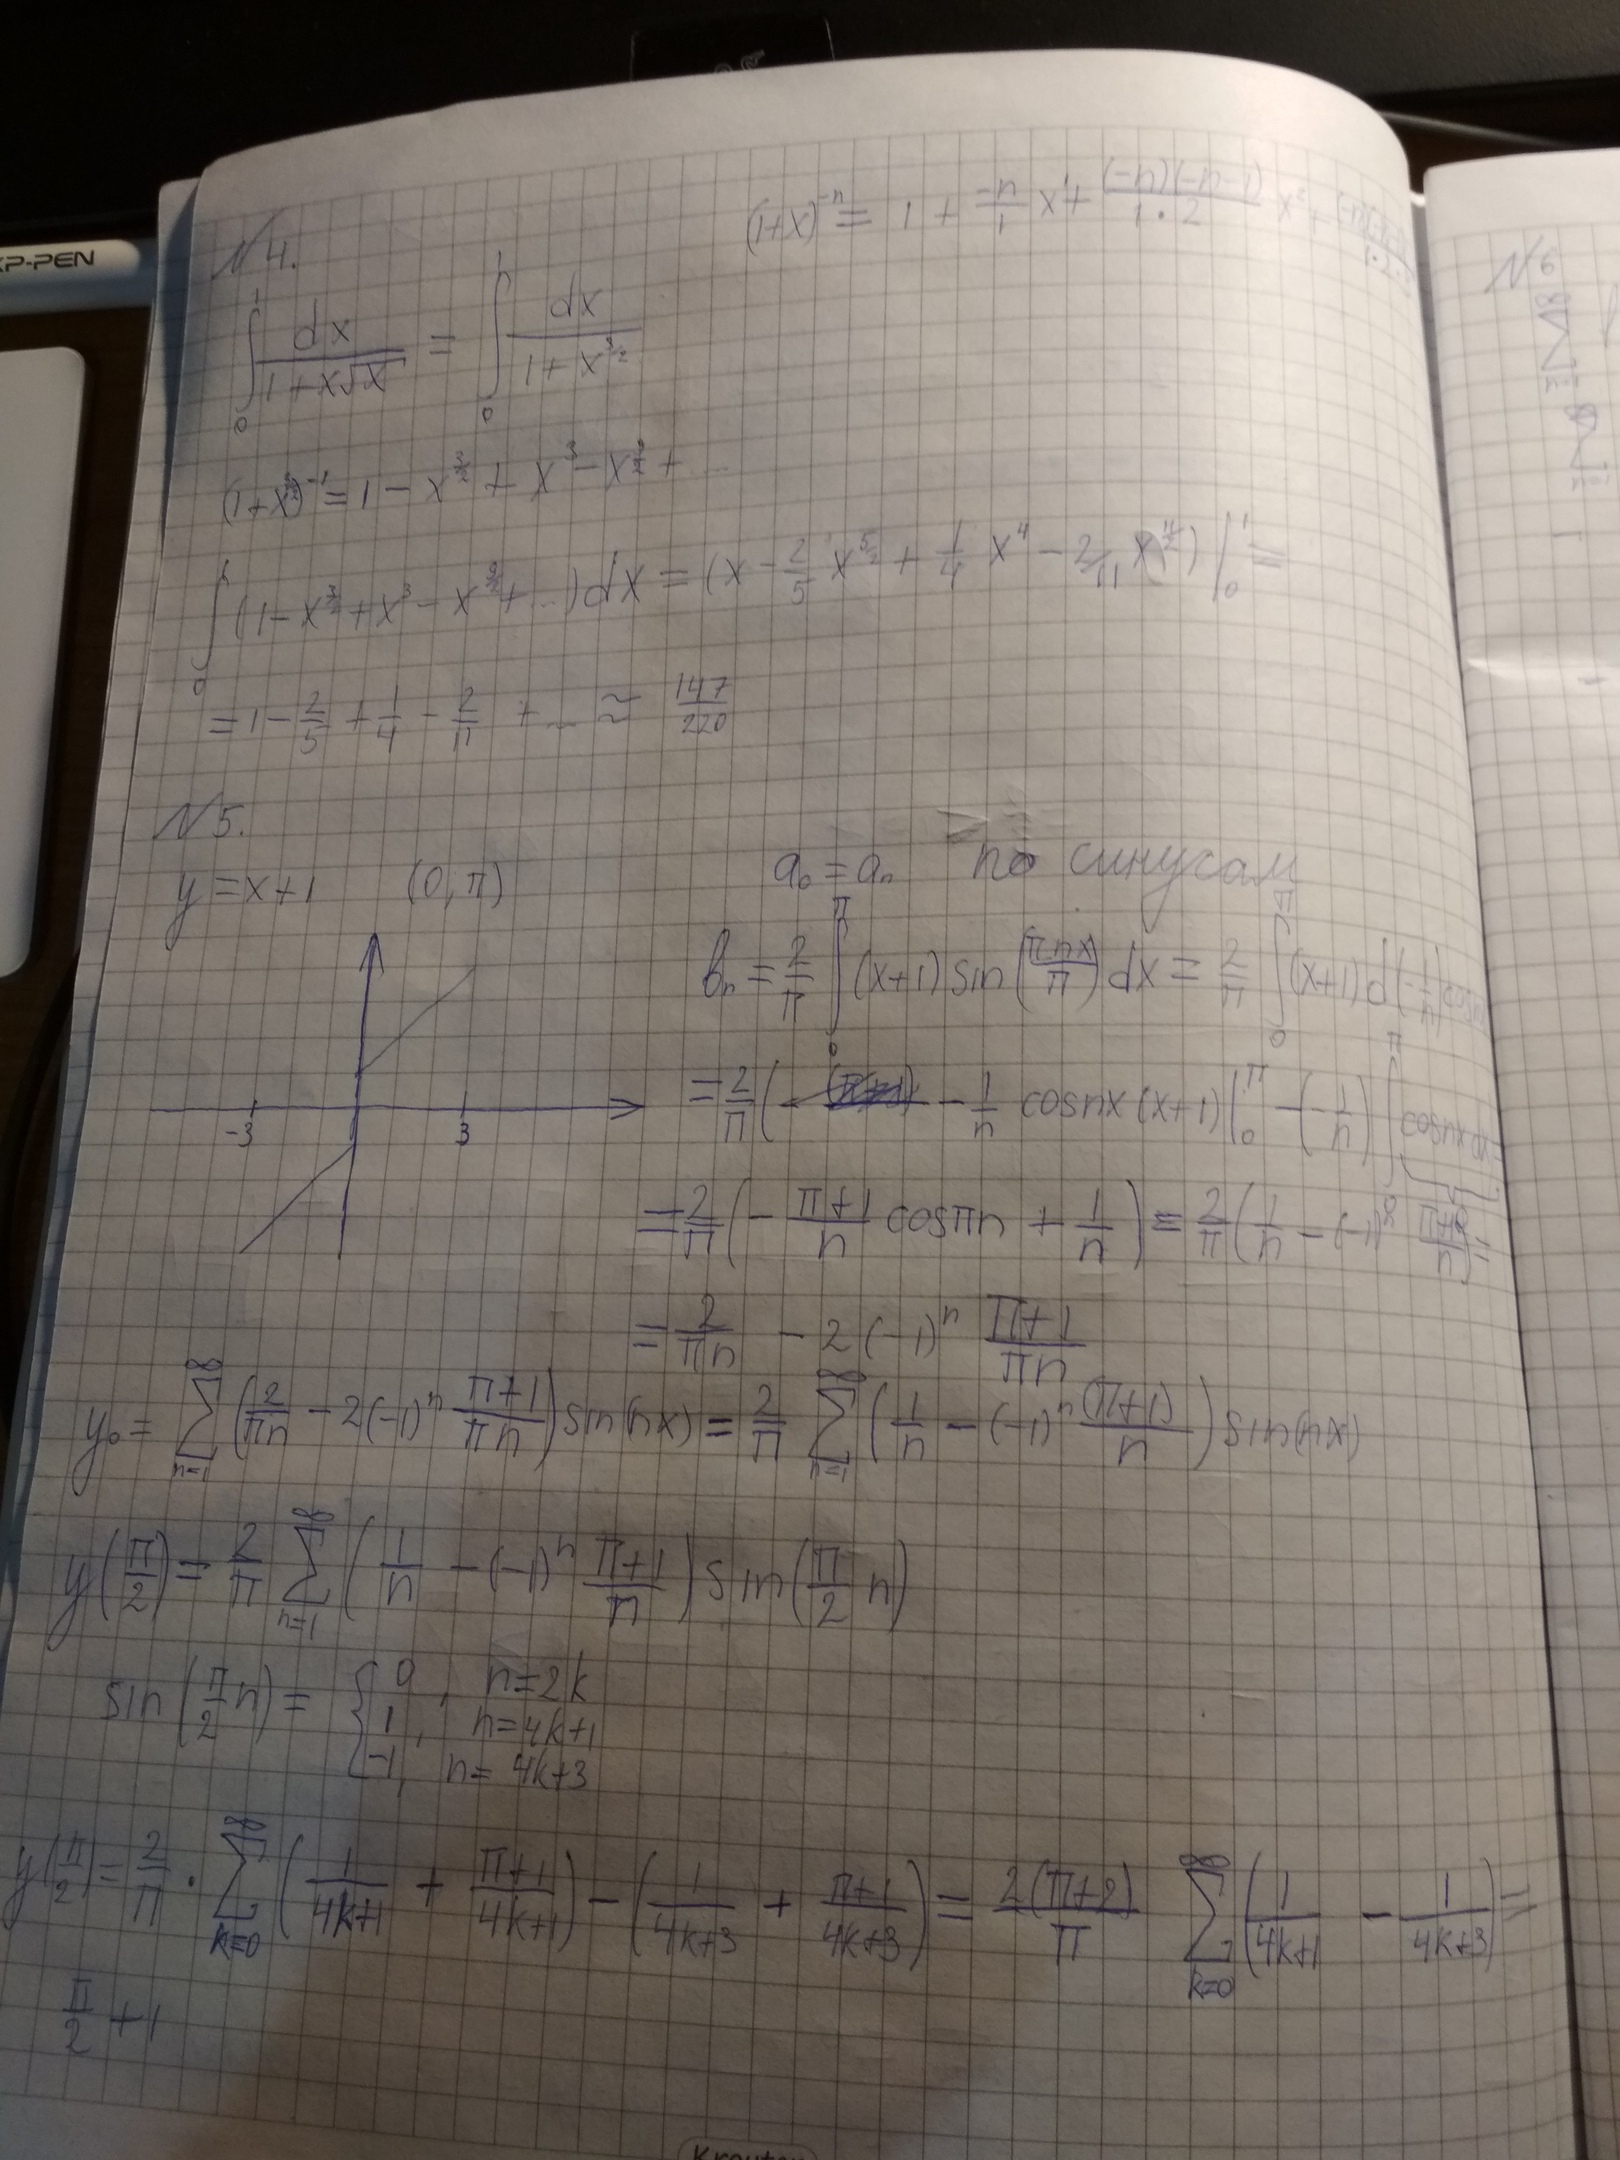 XP-PEN
(1+x)^{-n} = 1 + \frac{-n}{1} x^1 + \frac{(-n)(-n-1)}{1·2} x^2 +
N4.
\int_0^1 \frac{dx}{1+x\sqrt{x}} = \int_0^1 \frac{dx}{1+x^{3/2}}
(1+x^{3/2})^{-1} = 1 - x^{3/2} + x^3 - x^{9/2} + ...
\int_0^1 (1 - x^{3/2} + x^3 - x^{9/2} + ...) dx = (x - \frac{2}{5} x^{5/2} + \frac{1}{4} x^4 - 2/11 x^{11/2}) |_0^1 =
= 1 - \frac{2}{5} + \frac{1}{4} - \frac{2}{11} + ... ≈ \frac{147}{220}
N5.
y = x+1 (0, π) a_0 = a_n по синусам
b_n = \frac{2}{π} \int_0^π (x+1) sin(\frac{πnx}{π}) dx = \frac{2}{π} \int_0^π (x+1) d(-\frac{1}{n}) cosnx
= \frac{2}{π} ( - \frac{1}{n} cosnx (x+1) |_0^π - (-\frac{1}{n}) \int_0^π cosnx dx =
-3 3
= \frac{2}{π} (- \frac{π+1}{n} cosπn + \frac{1}{n}) = \frac{2}{π} (\frac{1}{n} - (-1)^n \frac{π+1}{n}) =
= \frac{2}{πn} - 2(-1)^n \frac{π+1}{πn}
y_0 = \sum_{n=1}^∞ (\frac{2}{πn} - 2(-1)^n \frac{π+1}{πn}) sin(nx) = \frac{2}{π} \sum_{n=1}^∞ (\frac{1}{n} - (-1)^n \frac{(π+1)}{n}) sin(nx)
y(\frac{π}{2}) = \frac{2}{π} \sum_{n=1}^∞ (\frac{1}{n} - (-1)^n \frac{π+1}{n}) sin(\frac{π}{2} n)
sin(\frac{π}{2} n) = { 0, n=2k
1, n=4k+1
-1, n=4k+3
y(\frac{π}{2}) = \frac{2}{π} · \sum_{k=0}^∞ (\frac{1}{4k+1} + \frac{π+1}{4k+1}) - (\frac{1}{4k+3} + \frac{π+1}{4k+3}) = \frac{2(π+2)}{π} \sum_{k=0}^∞ (\frac{1}{4k+1} - \frac{1}{4k+3}) =
\frac{π}{2} + 1
N6